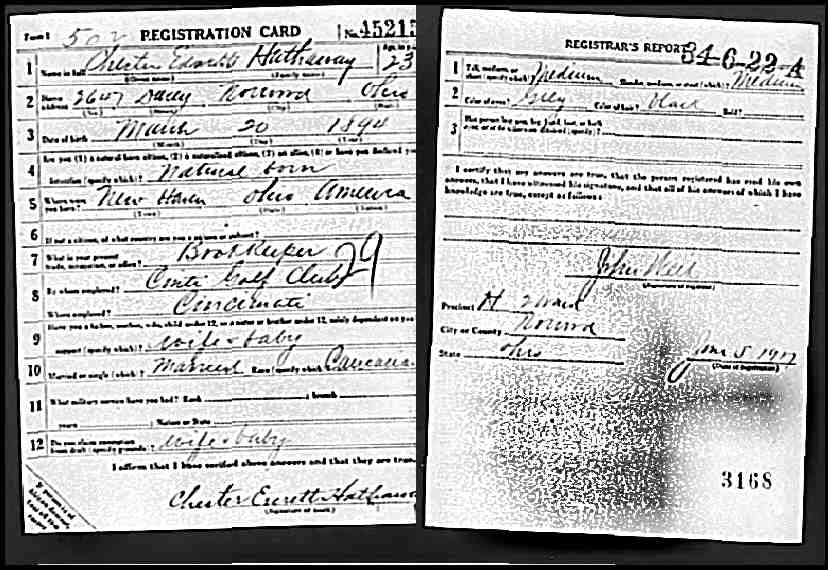 Form 1 502 REGISTRATION CARD No. 45213
1 Name in full Chester Everett Hathaway Age, in yrs. 23
(Given name) (Family name)
2 Home address 2647 Norwood Ohio
(No.) (Street) (City) (State)
3 Date of birth March 20 1894
(Month) (Day) (Year)
4 Are you (1) a natural born citizen, (2) a naturalized citizen, (3) an alien, (4) or have you declared your
intention (specify which)? Natural born
5 Where were you born? New Haven Ohio America
(Town) (State) (Nation)
6 If not a citizen, of what country are you a citizen or subject?
7 What is your present trade, occupation, or office? Bookkeeper 29
8 By whom employed? Cinti Golf Club
Where employed? Cincinnati
9 Have you a father, mother, wife, child under 12, or a sister or brother under 12, solely dependent on you
support (specify which)? wife & baby
10 Married or single (which)? Married Race (specify which) Caucasia
11 What military service have you had? Rank ; branch
years ; Nation or State
12 Do you claim exemption from draft (specify grounds)? wife & baby
I affirm that I have verified above answers and that they are true.
Chester Everett Hathaway
(Signature or mark)
REGISTRAR'S REPORT 34-6-22-A
1 Tall, medium, or short (specify which)? Medium Slender, medium, or stout (which)? Medium
2 Color of eyes? Grey Color of hair? Black Bald?
3 Has person lost arm, leg, hand, foot, or both
eyes, or is he otherwise disabled (specify)?
I certify that my answers are true, that the person registered has read his own
answers, that I have witnessed his signature, and that all of his answers of which I have
knowledge are true, except as follows:
John
(Signature of registrar)
Precinct H Ward
City or County Norwood
State Ohio June 5 1917
(Date of registration)
3168